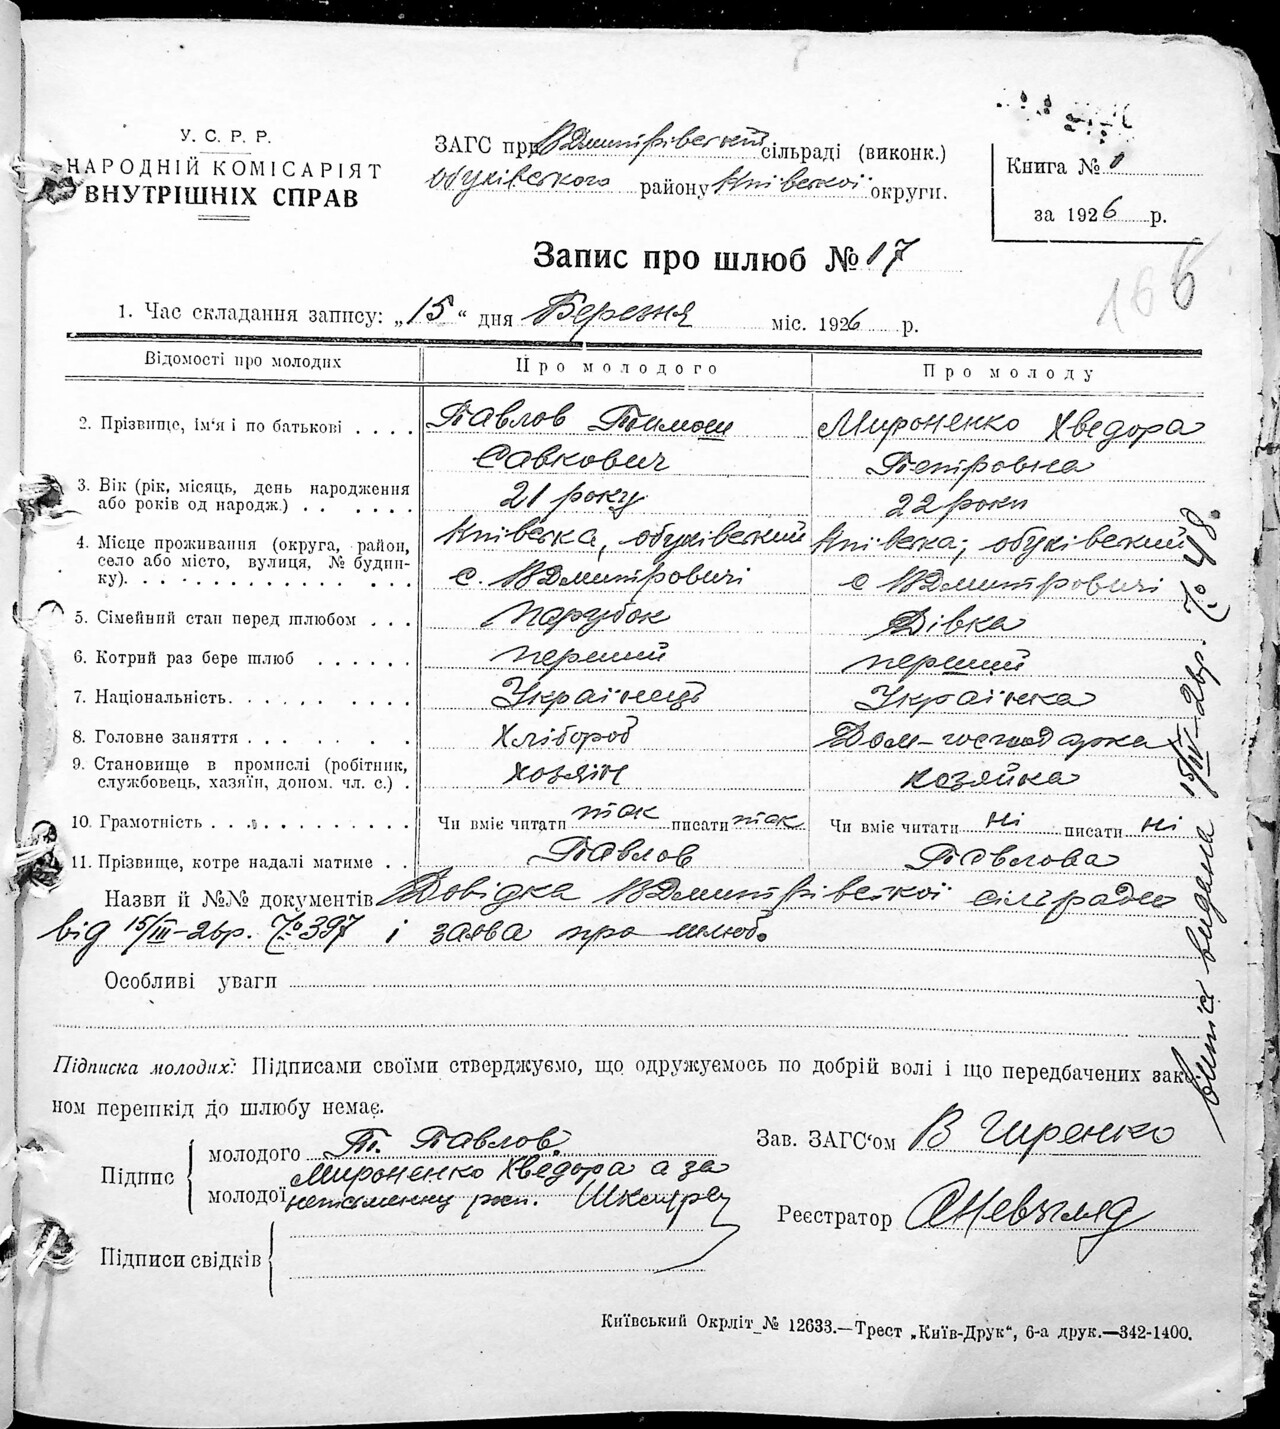 У. С. Р. Р.
НАРОДНІЙ КОМІСАРІЯТ
ВНУТРІШНІХ СПРАВ
ЗАГС при ВДмитрівській сільраді (виконк.)
Обухівського району Київської округи.
Книга № 1
за 1926 р.
Запис про шлюб № 17
166
1. Час складання запису: „15" дня Березня міс. 1926 р.
Відомості про молодих
Про молодого
Про молоду
2. Прізвище, ім'я і по батькові . . . .
Павлов Тимош
Савкович
Мироненко Хведора
Петровна
3. Вік (рік, місяць, день народження
або років од народж.) . . . . . .
21 року
22 роки
4. Місце проживання (округа, район,
село або місто, вулиця, № будин-
ку).
Київска, обухівський
с. ВДмитровичі
Київска; обухівский
с ВДмитровичі
5. Сімейний стан перед шлюбом . . .
Парубок
Дівка
6. Котрий раз бере шлюб . . . . . .
перший
перший
7. Національність.
Українець
Українка
8. Головне заняття
Хлібороб
Дом-господарка
9. Становище в промислі (робітник,
службовець, хазяїн, допом. чл. с.) .
хозяїн
хозяйка
10. Грамотність
Чи вміє читати так писати так
Чи вміє читати ні писати ні
11. Прізвище, котре надалі матиме . .
Павлов
Павлова
Назви й №№ документів Довідка ВДмитрівської сільради
від 15/III-26р. № 397 і заява про шлюб.
Особливі уваги
Підписка молодих: Підписами своїми стверджуємо, що одружуємось по добрій волі і що передбачених зако-
ном перешкід до шлюбу немає.
Підпис
молодого Т. Павлов
молодої Мироненко Хведора а за
неписьменну
Підписи свідків
Зав. ЗАГС'ом В Гиренко
Реєстратор
випись видана 15/IV-26р. № 48.
Київський Окрліт № 12633.—Трест „Київ-Друк", 6-а друк.—342-1400.